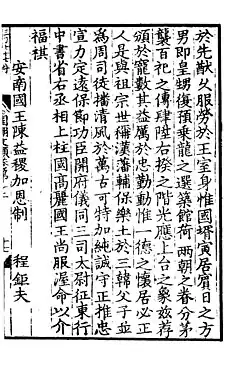 於先猷夂服勞於王室身惟國壻寅居賓日之方
男即皇甥復預乘龍之選築館荷兩朝之眷分茅
襲百祀之傳肆陞右揆之階光應上台之象兹薦
頒於寵數其益厲於忠勤於戲惟一德之懷居必正
人是與祖宗世稱漢藩輔保樂土於三韓父子並
為周司徒播清風於萬古可特加純誠守正推忠
宣力定遠保節功臣開府儀同三司太尉征東行
中書省右丞相上柱國高麗國王尚服渥命以介
福祺
安南國王陳益稷加恩制
程鉅夫